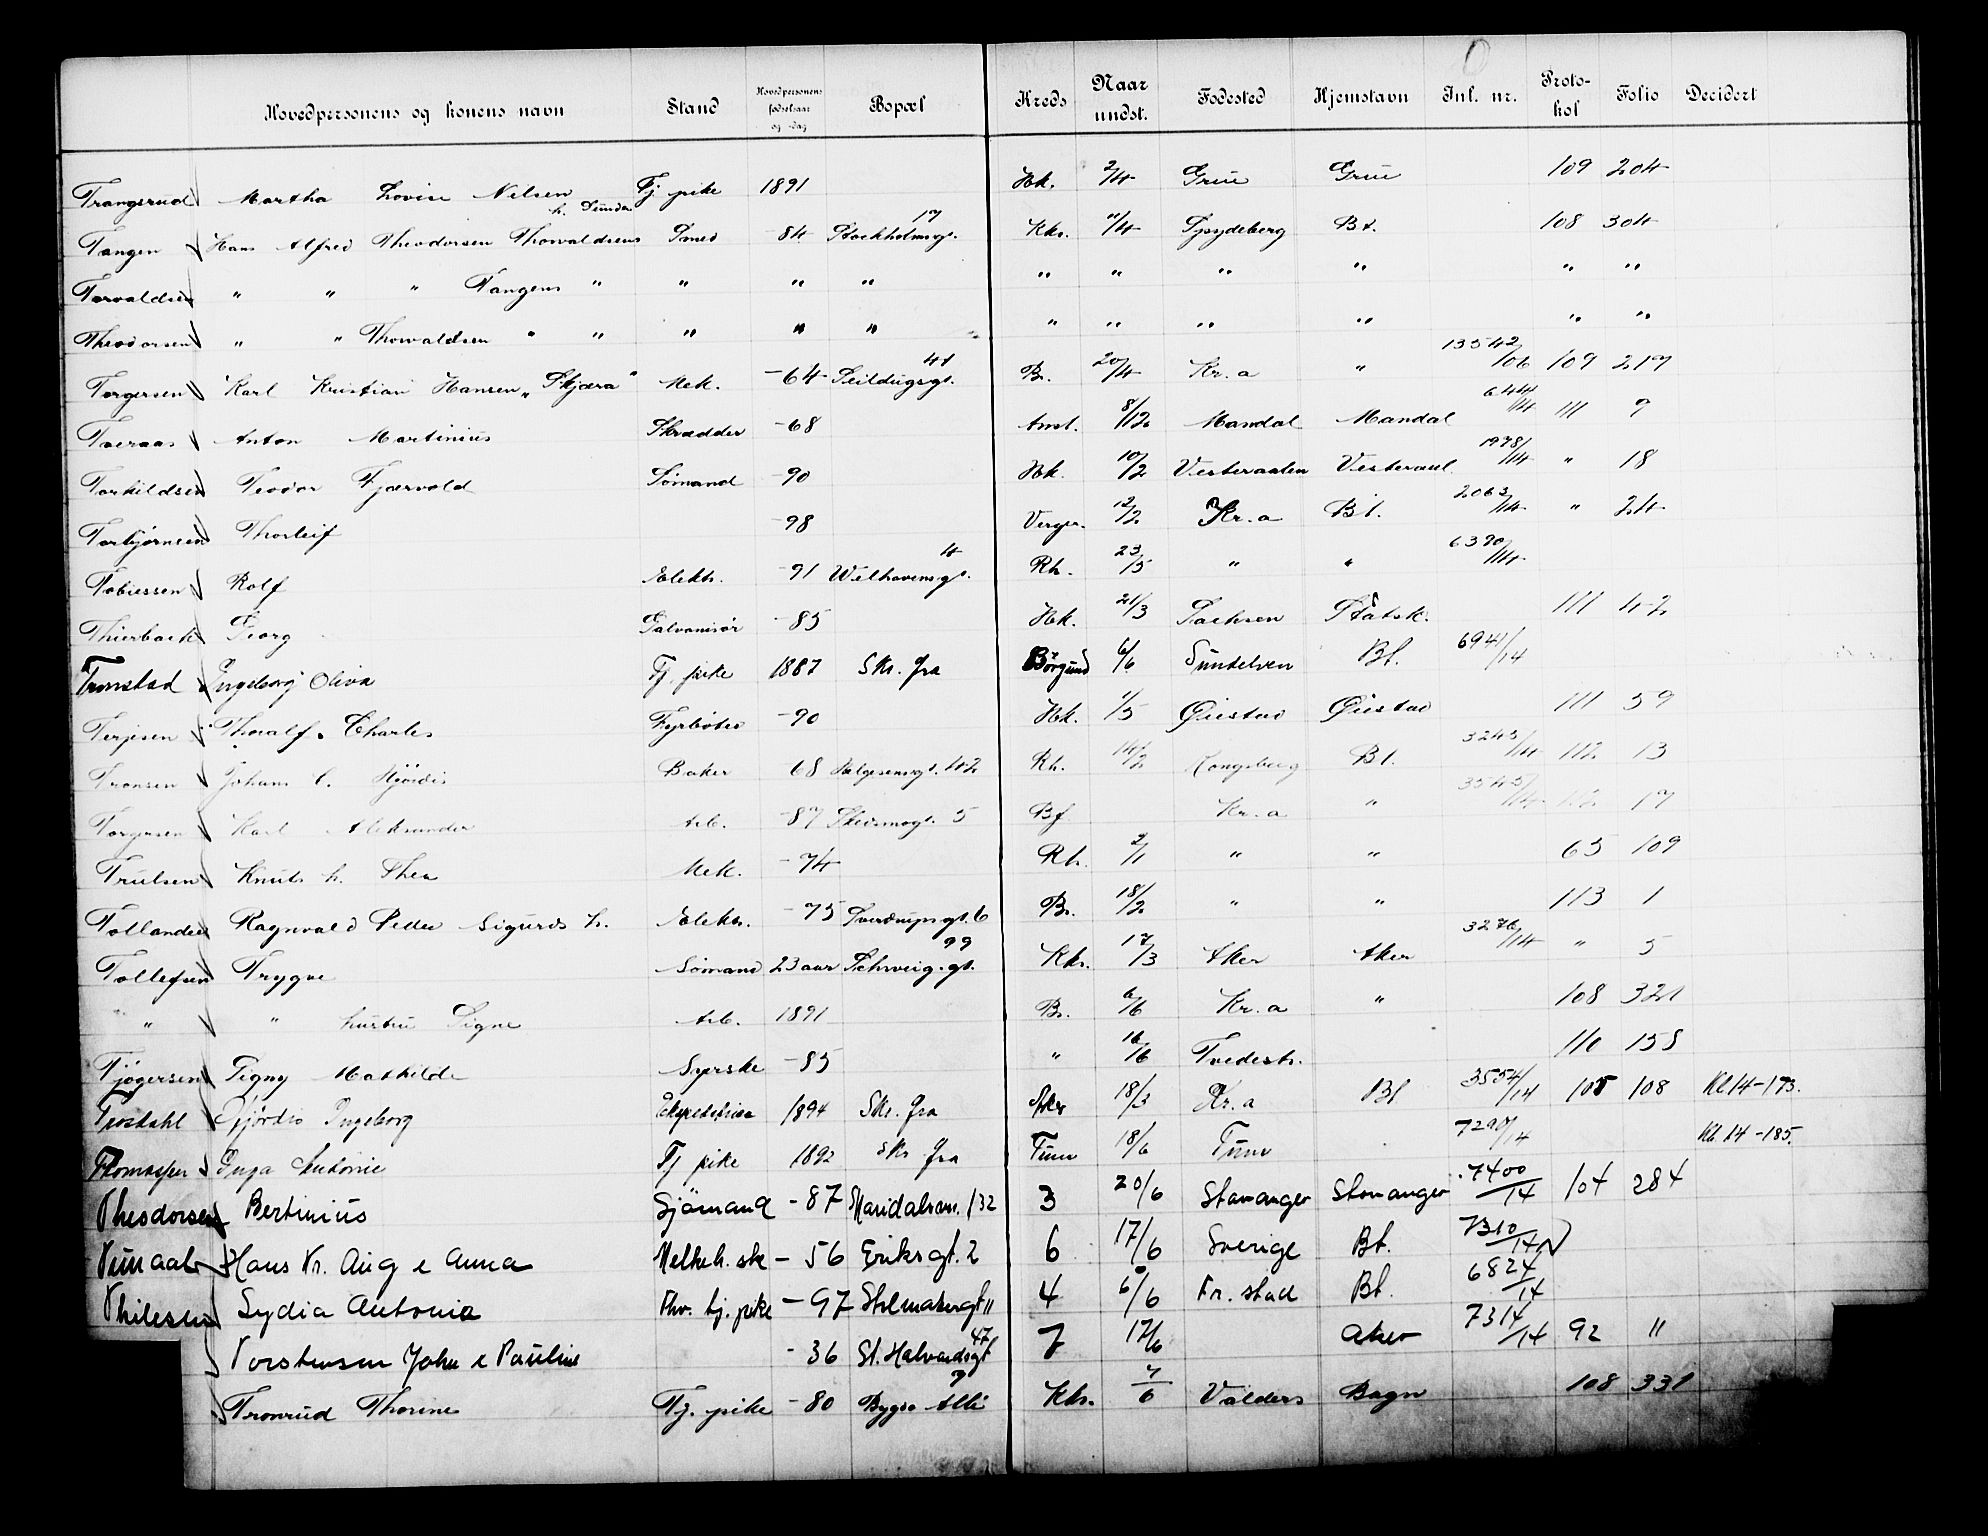 Hovedpersonens og konens navn Stand Hovedpersonens fødselsaar og -dag Bopæl Kreds Naar undst. Fødested Hjemstavn Jnl. nr. Proto-kol Folio Decidert
Trangsrud Martha Lovise Nilsen Tj. pike 1891 Hk. 2/4 Grue Grue 109 204
Tangen Hans Alfred Theodorsen Thorvaldsens h. Gunda Smed -84 Stockholmsgt. 17 Kks. 11/4 Spydeberg Bt. 108 304
Torvaldsen " " " Tangens " " " " " " " " " "
Theodorsen " " Thorvaldsen " " " " " " " " " " "
Torgersen Karl Kristian Hansen "Skjæra" Mek. -64 Seildugsgt. 41 Br. 20/4 Kr.a " 13542/06 109 217
Toeraas Anton Martinius Skrædder -68 Anst. 8/12 Mandal Mandal 644/14 111 9
Torkildsen Teodor Fjærvold Sømand -90 Hk. 10/2 Vesteraalen Vesteraal. 1978/14 " 18
Torbjørnsen Thorleif -98 Verger. 12/2 Kr.a Bt. 2063/14 " 24
Tobiessen Rolf Elektr. -91 Welhavensgt. 4 Rh. 23/5 " " 6390/14
Thierback Georg Galvanisør -85 Hk. 21/3 Sachsen Statsk. 111 42
Tronstad Ingeborg Oliva Tj. pike 1887 Skr. fra Borgund 6/6 Sundelven Bt. 6941/14
Terjesen Thoralf Charles Fyrbøter -90 Hk. 1/5 Øiestad Øiestad 111 59
Transen Johans C. Hjørdis Baker 68 Helgesensgt. 42 Rh. 14/2 Kongsberg Bt. 3243/14 112 13
Torgersen Karl Aleksander Arb. -87 Skedsmogt. 5 Bf Kr.a " 3545/14 112 17
Trulsen Knut h. Thea Mek. -74 Rh. 2/1 " " 65 109
Tollandsen Ragnvald Peder Sigurds h. Elektr. -75 Sverdrupsgt. 6 Br. 18/2 " " 113 1
Tollefsen Trygve Sømand 23 aar Schweig.gt. 99 Kks. 17/3 Aker Aker 3276/14 " 5
" " hustru Signe Arb. 1891 Br. 6/6 Kr.a " 108 321
Tjøgersen Signy Mathilde Syerske -85 " 16/6 Tvedestr. 110 158
Trosdahl Hjørdis Ingeborg Ekspeditrise 1894 Skr. fra Aker 18/3 Kr.a Bt 3554/14 105 108 Kl. 14-173.
Thomassen Inga Antonie Tj pike 1892 Skr fra Tune 18/6 Tune 7290/14 Kl. 14-185.
Theodorsen Bertinius Sjømand -87 Maridalsvn. 132 3 20/6 Stavanger Stavanger 7400/14 104 284
Hans Kr. Aug e Anna Melkeh. sk -56 Eriksgt. 2 6 17/6 Sverige Bt. 7310/14
Lydia Antonie Fhv. tj. pike -97 11 4 6/6 Fr.stad Bt. 6824/14
Torstensen John e Pauline -36 St. Halvardsgt 47 7 17/6 Aker 7314/14 92 11
Tronrud Thorine Tj. pike -80 Bygdø Allé 7 Kks. 7/6 Valders Bagn 108 331